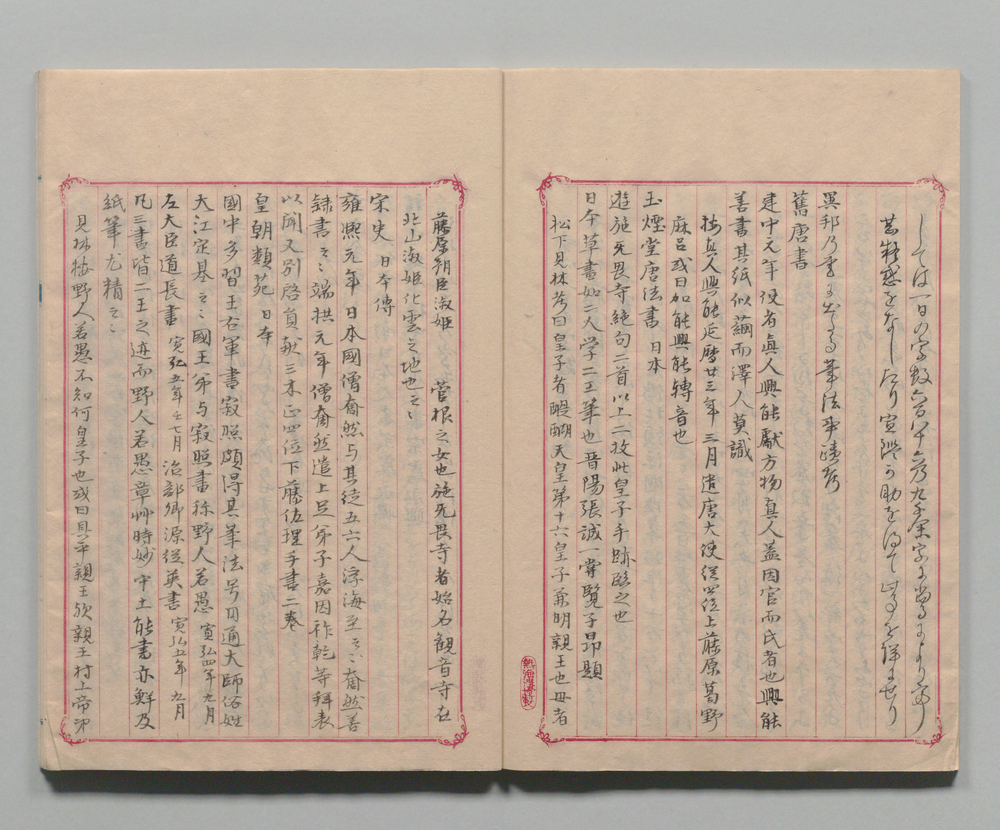 しては一日の字数六百八十六万九千余字に当るより
異邦乃書に出る筆法事蹟考
舊唐書
建中元年使者眞人興能獻方物真人蓋因官而氏者也興能
善書其紙似繭而澤人莫識
按真人興能延暦廿三年三月遣唐大使從四位上藤原葛野
麻呂或曰加能興能轉音也
玉煙堂唐法書 日本
遊施无畏寺絶句二首以上二枚此皇子手跡臨之也
日今草書如二人学二王筆也晋陽張誠一甞覧子昂題
松下見林考曰皇子者醍醐天皇第十六皇子兼明親王也毋者
藤原朝臣淑姫 菅根之女也施无畏寺者始名観音寺在
北山淑姫化雲之地也云々
宋史 日本傳
雍熈元年日本國僧奝然与其徒五六人浮海至云々奝然善
隸書云々端拱元年僧奝然遣上足弟子嘉因祚乾等拜表
以聞又別啓貢献三木正四位下藤佐理手書二巻
皇朝類苑 日本
國中多習王右軍書寂照頗得其筆法号曰通大師俗姓
大江定基云々國王弟与寂照書称野人若愚 寛弘四年九月
左大臣道長書 寛弘五年七月 治部卿源從英書 寛弘五年九月
凡三書皆二王之迹而野人若愚章艸時妙中土能書亦鮮及
紙筆尤精云々
見林按野人若愚不知何皇子也或曰具平親王欤親王村上帝第